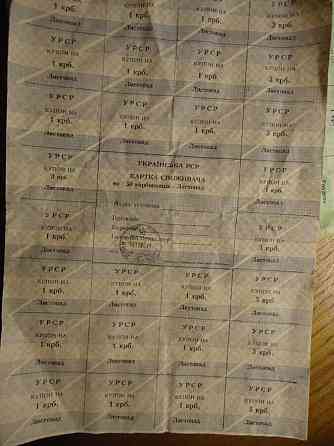 КУПОН НА КУПОН НА КУПОН НА КУПОН НА
1 крб. 1 крб. 1 крб. 3 крб.
Листопад Листопад Листопад Листопад
УРСР УРСР УРСР УРСР
КУПОН НА КУПОН НА КУПОН НА КУПОН НА
1 крб. 1 крб. 1 крб. 3 крб.
Листопад Листопад Листопад Листопад
УРСР УРСР УРСР УРСР
КУПОН НА КУПОН НА КУПОН НА КУПОН НА
1 крб. 1 крб. 1 крб. 3 крб.
Листопад Листопад Листопад Листопад
УРСР УРСР УРСР УРСР
КУПОН НА КУПОН НА КУПОН НА КУПОН НА
1 крб. 1 крб. 1 крб. 3 крб.
Листопад Листопад Листопад Листопад
УРСР УКРАЇНСЬКА РСР УРСР
КУПОН НА КАРТКА СПОЖИВАЧА КУПОН НА
на 50 карбованців - Листопад
Листопад Листопад
УРСР УРСР
КУПОН НА КУПОН НА
1 крб. 3 крб.
Листопад Листопад
УРСР УРСР УРСР УРСР
КУПОН НА КУПОН НА КУПОН НА КУПОН НА
1 крб. 1 крб. 1 крб. 3 крб.
Листопад Листопад Листопад Листопад
УРСР УРСР УРСР УРСР
КУПОН НА КУПОН НА КУПОН НА КУПОН НА
1 крб. 1 крб. 1 крб. 3 крб.
Листопад Листопад Листопад Листопад
УРСР УРСР УРСР УРСР
КУПОН НА КУПОН НА КУПОН НА КУПОН НА
1 крб. 1 крб. 1 крб. 3 крб.
Листопад Листопад Листопад Листопад